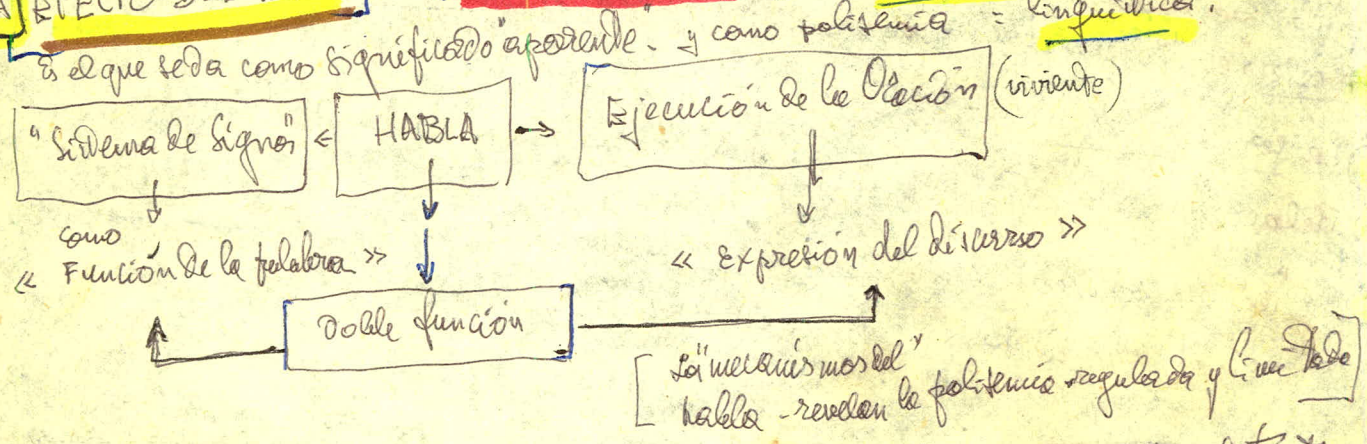 lingüística.
Es el que se da como significado "aparente". y como polisemia =
"Sistema de Signos" < HABLA → Ejecución de la Oración (viviente)
como
« Función de la palabra »
« Expresión del discurso »
Doble función
"mecanismos del"
habla - revelan la polisemia regulada y limitada